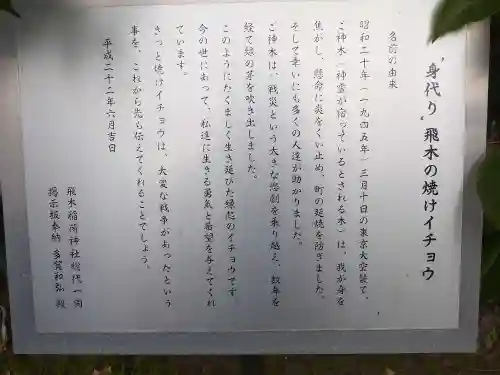 "身代り"飛木の焼けイチョウ
名前の由来
昭和二十年(一九四五年)三月十日の東京大空襲で、
ご神木(神霊が宿っているとされる木)は、我が身を
焦がし、懸命に炎をくい止め、町の延焼を防ぎました。
そして幸いにも多くの人達が助かりました。
ご神木は、戦災という大きな悲劇を乗り越え、数年を
経て緑の芽を吹き出しました。
このようにたくましく生き延びた縁起のイチョウです
今の世にあって、私達に生きる勇気と希望を与えてくれ
ています。
きっと焼けイチョウは、大変な戦争があったという
事を、これから先も伝えてくれることでしょう。
平成二十二年六月吉日
飛木稲荷神社総代一同
掲示板奉納 多賀和弘 殿